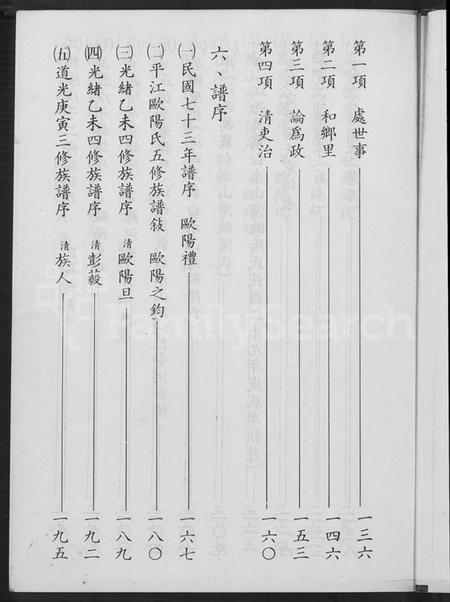 第一項 處世事 一三六
第二項 和鄉里 一四六
第三項 論為政 一五三
第四項 清吏治 一六〇
六、譜序
㈠民國七十三年譜序 歐陽禮 一六七
㈡平江歐陽氏五修族譜敍 歐陽之鈞 一八〇
㈢光緒乙未四修族譜序 清歐陽旦 一八九
㈣光緒乙未四修族譜序 清彭蘐 一九二
㈤道光庚寅三修族譜序 清族人 一九五
FamilySearch